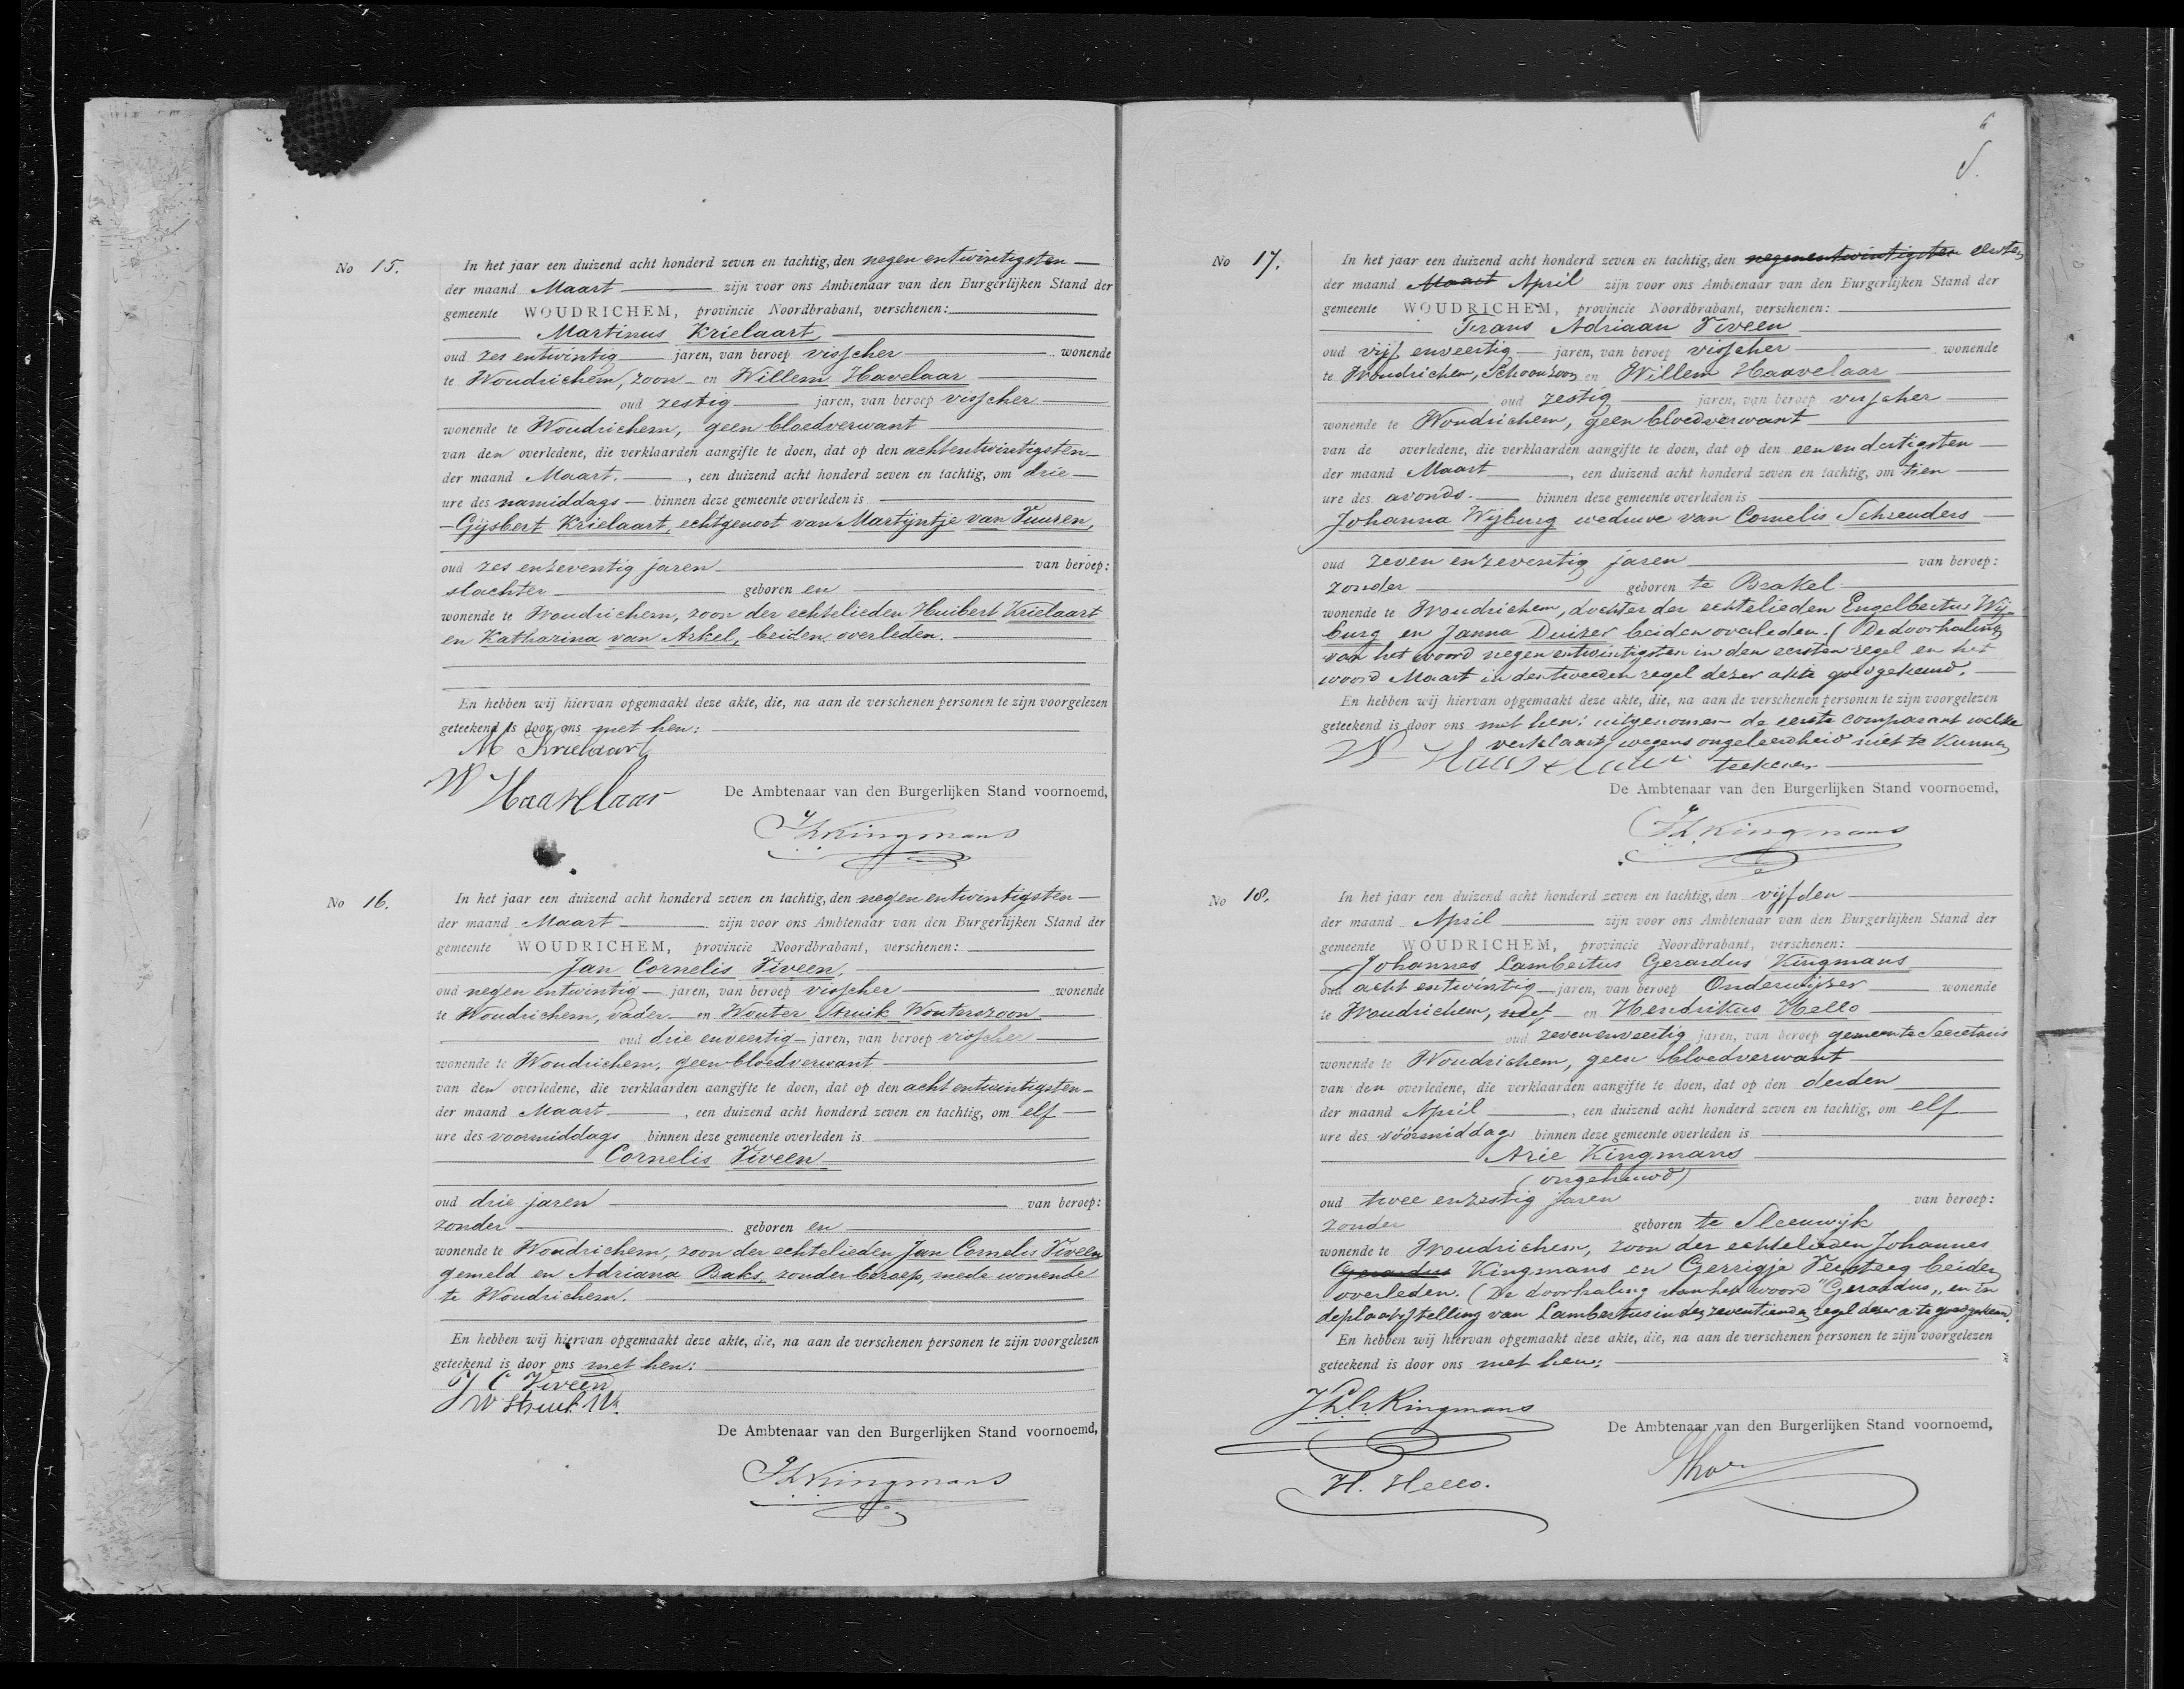 No 15.
In het jaar een duizend acht honderd zeven en tachtig, den negen entwintigsten
der maand Maart zijn voor ons Ambtenaar van den Burgerlijken Stand der
gemeente WOUDRICHEM, provincie Noordbrabant, verschenen:
Martinus Krielaart,
oud zes entwintig jaren, van beroep visscher wonende
te Woudrichem, zoon en Willem Havelaar
oud zestig jaren, van beroep visscher
wonende te Woudrichem, geen bloedverwant
van den overledene, die verklaarden aangifte te doen, dat op den achtentwintigsten
der maand Maart, een duizend acht honderd zeven en tachtig, om drie
ure des namiddags binnen deze gemeente overleden is
Gijsbert Krielaart, echtgenoot van Martijntje van Tuuren,
oud zes enzeventig jaren van beroep:
slachter geboren en
wonende te Woudrichem, zoon der echtelieden Huibert Krielaart
en Katharina van Arkel, beiden overleden.
En hebben wij hiervan opgemaakt deze akte, die, na aan de verschenen personen te zijn voorgelezen
geteekend is door ons met hen:
M Krielaart
W Haavelaar
De Ambtenaar van den Burgerlijken Stand voornoemd,
Kingmans
No 16.
In het jaar een duizend acht honderd zeven en tachtig, den negen entwintigsten
der maand Maart zijn voor ons Ambtenaar van den Burgerlijken Stand der
gemeente WOUDRICHEM, provincie Noordbrabant, verschenen:
Jan Cornelis Viveen,
oud negen entwintig jaren, van beroep visscher wonende
te Woudrichem, vader en Wouter Struik Wouterszoon
oud drie enveertig jaren, van beroep visscher
wonende te Woudrichem, geen bloedverwant
van den overledene, die verklaarden aangifte te doen, dat op den acht entwintigsten
der maand Maart, een duizend acht honderd zeven en tachtig, om elf
ure des voormiddags binnen deze gemeente overleden is
Cornelis Viveen
oud drie jaren van beroep:
zonder geboren en
wonende te Woudrichem, zoon der echtelieden Jan Cornelis Viveen
gemeld en Adriana Baks, zonder beroep, mede wonende
te Woudrichem.
En hebben wij hiervan opgemaakt deze akte, die, na aan de verschenen personen te zijn voorgelezen
geteekend is door ons met hen:
J C Viveen
W Struik Wz.
De Ambtenaar van den Burgerlijken Stand voornoemd,
Kingmans
No 17.
In het jaar een duizend acht honderd zeven en tachtig, den negenentwintigsten eersten
der maand Maart April zijn voor ons Ambtenaar van den Burgerlijken Stand der
gemeente WOUDRICHEM, provincie Noordbrabant, verschenen:
Frans Adriaan Viveen
oud vijf enveertig jaren, van beroep visscher wonende
te Woudrichem, Schoonzoon en Willem Haavelaar
oud zestig jaren, van beroep visscher
wonende te Woudrichem, geen bloedverwant
van de overledene, die verklaarden aangifte te doen, dat op den een en dertigsten
der maand Maart, een duizend acht honderd zeven en tachtig, om tien
ure des avonds. binnen deze gemeente overleden is
Johanna Wijburg weduwe van Cornelis Schreuders
oud zeven enzeventig jaren van beroep:
zonder geboren te Brakel
wonende te Woudrichem, dochter der echtelieden Engelbertus Wij-
burg en Janna Duizer beiden overleden. (De doorhaling
van het woord negen entwintigsten in den eersten regel en het
woord Maart in den tweeden regel dezer akte goedgekeurd.
En hebben wij hiervan opgemaakt deze akte, die, na aan de verschenen personen te zijn voorgelezen
geteekend is door ons met hen: uitgenomen de eerste comparant welke
verklaart wegens ongeleerdheid niet te kunnen
teekenen
W Haavelaar
De Ambtenaar van den Burgerlijken Stand voornoemd,
Kingmans
No 18.
In het jaar een duizend acht honderd zeven en tachtig, den vijfden
der maand April zijn voor ons Ambtenaar van den Burgerlijken Stand der
gemeente WOUDRICHEM, provincie Noordbrabant, verschenen:
Johannes Lambertus Gerardus Kingmans
oud acht entwintig jaren, van beroep Onderwijzer wonende
te Woudrichem, neef en Hendrikus Hello
oud zevenenveertig jaren, van beroep gemeente Secretaris
wonende te Woudrichem, geen bloedverwant
van den overledene, die verklaarden aangifte te doen, dat op den derden
der maand April, een duizend acht honderd zeven en tachtig, om elf
ure des vóórmiddags binnen deze gemeente overleden is
Arie Kingmans
(ongehuwd)
oud twee enzestig jaren van beroep:
zonder geboren te Sleeuwijk
wonende te Woudrichem, zoon der echtelieden Johannes
Gerardus Kingmans en Gerrigje Versteeg beiden
overleden. (De doorhaling van het woord "Gerardus" en in
deplaatsstelling van Lambertus in den zeventienden regel dezer akte goedgekeurd.
En hebben wij hiervan opgemaakt deze akte, die, na aan de verschenen personen te zijn voorgelezen
geteekend is door ons met hen:
J.L.G. Kingmans
H. Hello.
De Ambtenaar van den Burgerlijken Stand voornoemd,